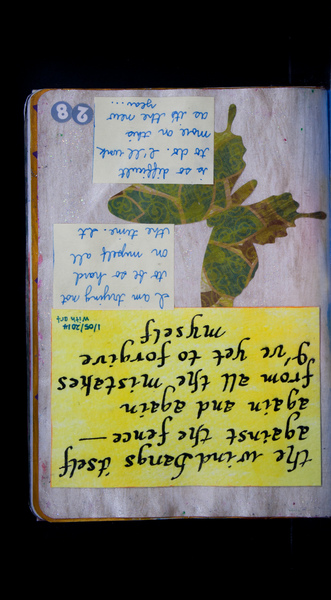 the wind bangs itself
against the fence —
again and again
from all the mistakes
I've yet to forgive
myself
11/05/2014
with art
I am trying not
to be so hard
on myself all
the time. It
is so difficult
to do. I'll work
more on this
as it's the new
year...
28